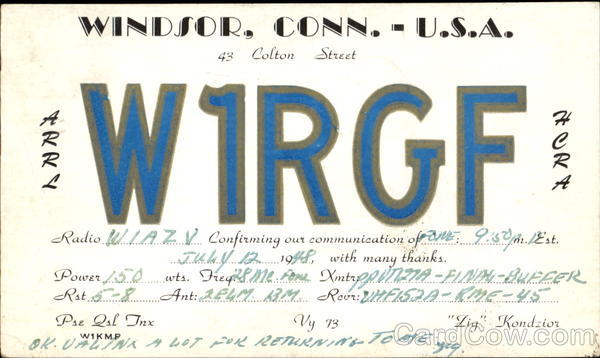 WINDSOR, CONN. - U.S.A.
43 Colton Street
ARRL
W1RGF
HCRA
Radio W1AZV Confirming our communication of FONE: 9:50 P.m. Est.
JULY 12 1948, with many thanks.
Power 150 wts. Freq 28 MC Fone Xmtr: FINAL-BUFFER
Rst 5-8 Ant: 2 ELM. BM Rcvr: VHF152A-RME-45
Pse Qsl Tnx Vy 73 "Zig" Kondzior
W1KMP
OK A LOT FOR RETURNING TO ME
CardCow.com